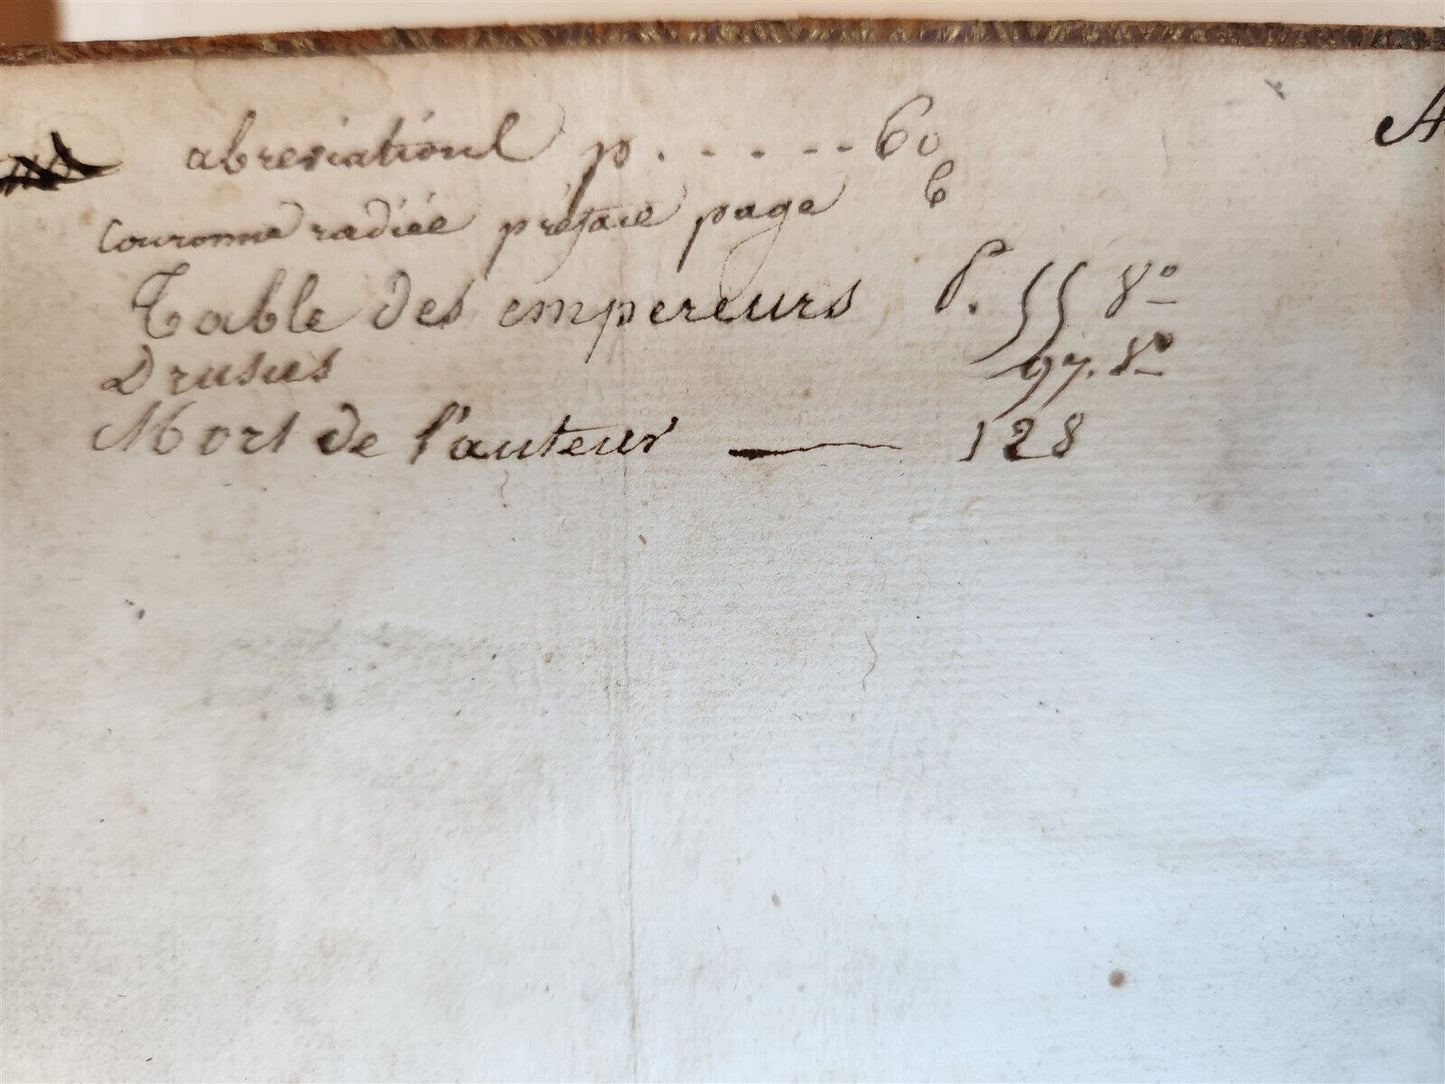 abreviations p. . . . . -- 60
couronne radiée préface page 6
Table des empereurs P. 55 Vº
Drusus 97. Vº
Mort de l'auteur — 128
A